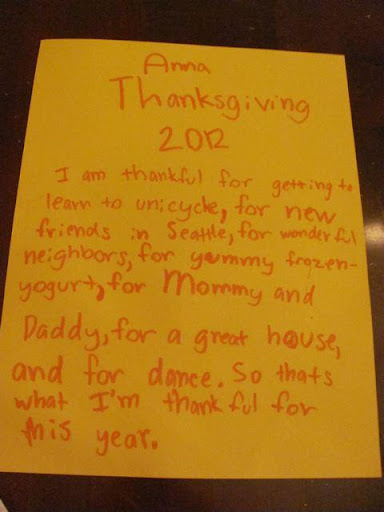 Anna
Thanksgiving
2012
I am thankful for getting to
learn to unicycle, for new
friends in Seattle, for wonderful
neighbors, for yummy frozen-
yogurt, for Mommy and
Daddy, for a great house,
and for dance. So thats
what I'm thankful for
this year.